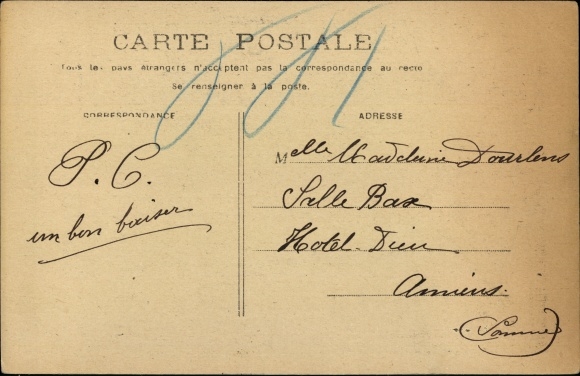 CARTE POSTALE
Tous les pays étrangers n'acceptent pas la correspondance au recto
Se renseigner à la poste.
CORRESPONDANCE
P. C.
un bon baiser
ADRESSE
Melle Madeleine Dourlens
Salle Bax
Hotel-Dieu
Amiens.
(Somme)